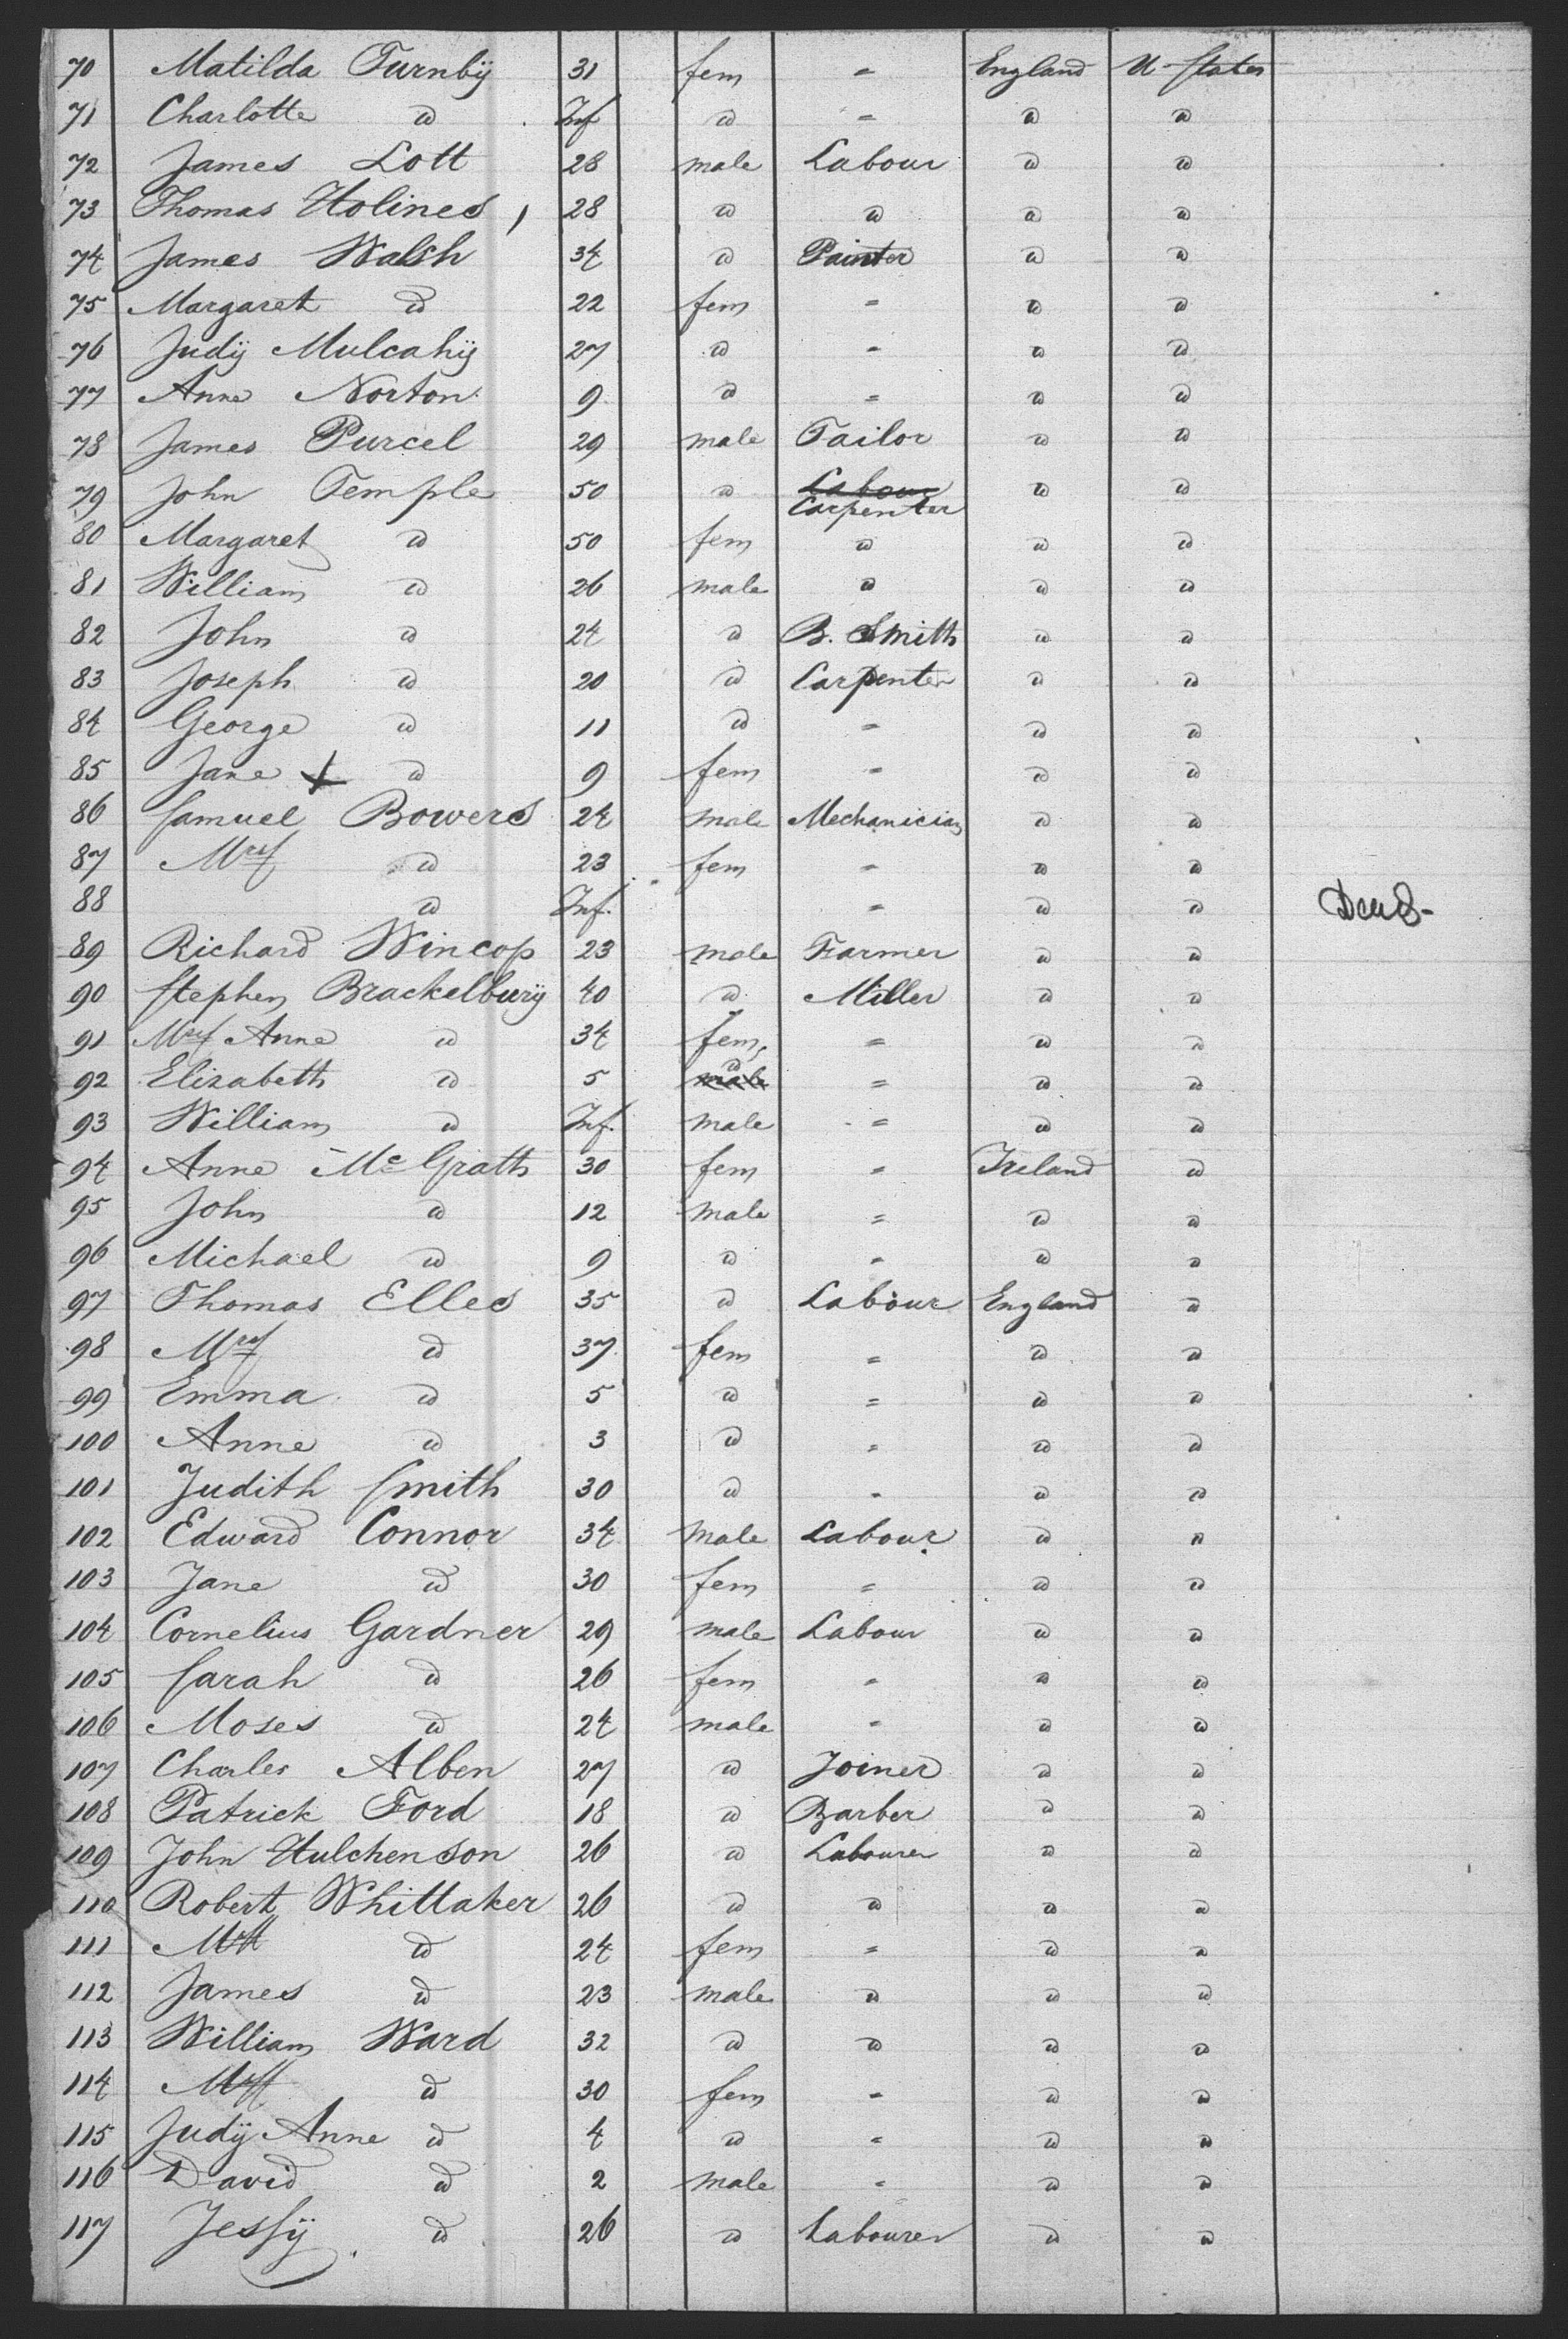 70 Matilda Turnbÿ 31 fem = England U States
71 Charlotte d Inf d = d d
72 James Lott 28 male Labour d d
73 Thomas Holines 28 d d d d
74 James Walsh 34 d Painter d d
75 Margaret d 22 fem = d d
76 Judÿ Mulcahÿ 27 d = d d
77 Anne Norton 9 d = d d
78 James Purcel 29 male Tailor d d
79 John Temple 50 d Labour Carpenter d d
80 Margaret d 50 fem d d d
81 William d 26 male d d d
82 John d 24 d B. Smith d d
83 Joseph d 20 d Carpenter d d
84 George d 11 d = d d
85 Jane d 9 fem = d d
86 Samuel Bowers 24 male Mechanician d d
87 Mrs d 23 fem = d d
88 d Inf. = d d Dead-
89 Richard Wincop 23 male Farmer d d
90 Stephen Brackelburÿ 40 d Miller d d
91 Mrs Anne d 34 fem = d d
92 Elizabeth d 5 male d = d d
93 William d Inf. male = d d
94 Anne Mc Grath 30 fem = Ireland d
95 John d 12 male = d d
96 Michael d 9 d = d d
97 Thomas Elles 35 d Labour England d
98 Mrs d 37 fem = d d
99 Emma d 5 d = d d
100 Anne d 3 d = d d
101 Judith Smith 30 d = d d
102 Edward Connor 34 male Labour d d
103 Jane d 30 fem = d d
104 Cornelius Gardner 29 male Labour d d
105 Sarah d 26 fem = d d
106 Moses d 24 male = d d
107 Charles Alben 27 d Joiner d d
108 Patrick Ford 18 d Barber d d
109 John Hulchenson 26 d Labourer d d
110 Robert Whittaker 26 d d d d
111 Mrs d 24 fem = d d
112 James d 23 male d d d
113 William Ward 32 d d d d
114 Mrs d 30 fem = d d
115 Judÿ Anne d 4 d = d d
116 David d 2 male = d d
117 Jessÿ d 26 d Labourer d d